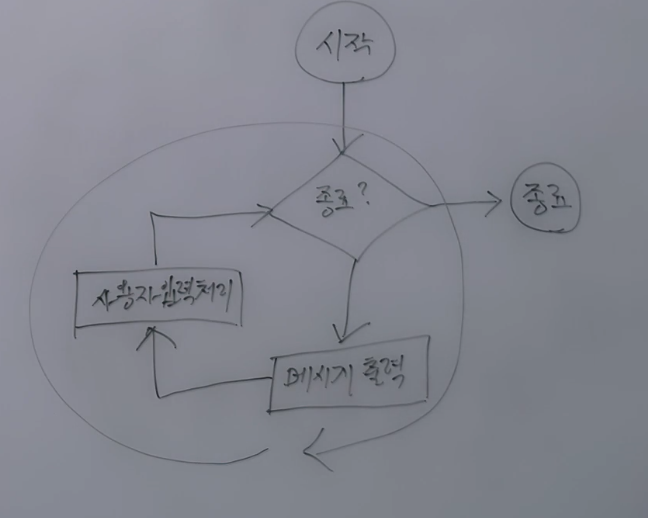 시작
종료?
종료
사용자입력처리
메시지 출력